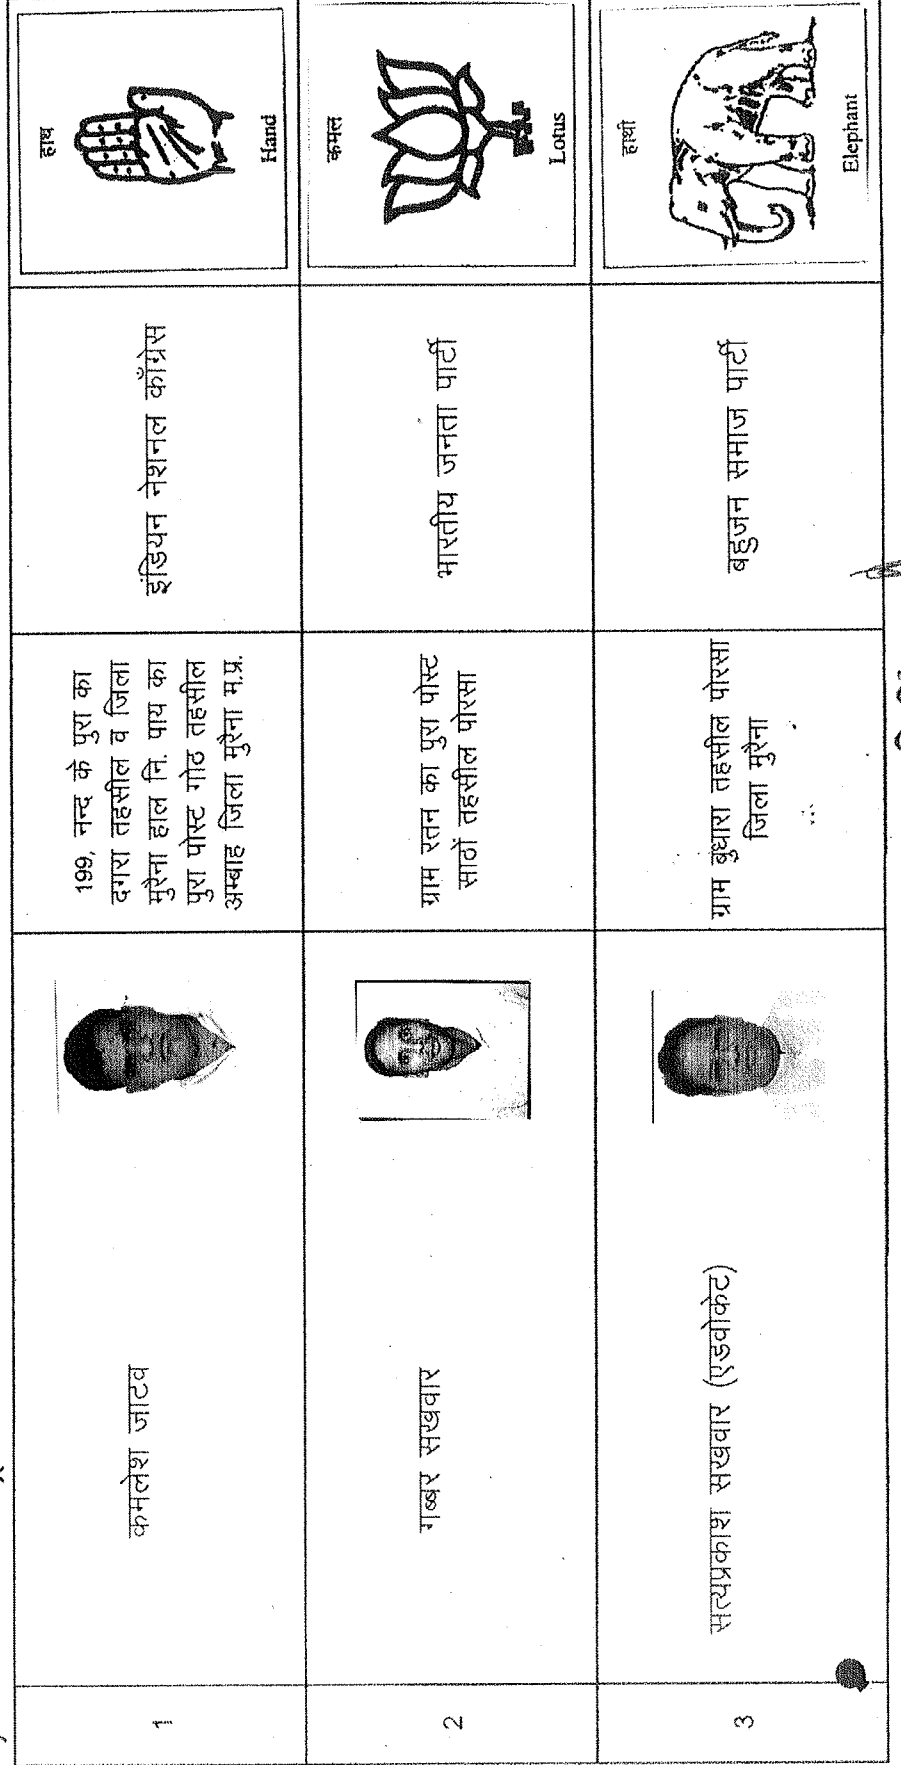 1
कमलेश जाटव
199, नन्द के पुरा का
दगरा तहसील व जिला
मुरैना हाल नि. पाय का
पुरा पोस्ट गोठ तहसील
अम्बाह जिला मुरैना म.प्र.
इंडियन नेशनल कॉंग्रेस
हाथ
Hand
2
गब्बर सखवार
ग्राम रतन का पुरा पोस्ट
साठों तहसील पोरसा
भारतीय जनता पार्टी
कमल
Lotus
3
सत्यप्रकाश सखवार (एडवोकेट)
ग्राम बुधारा तहसील पोरसा
जिला मुरैना
बहुजन समाज पार्टी
हाथी
Elephant